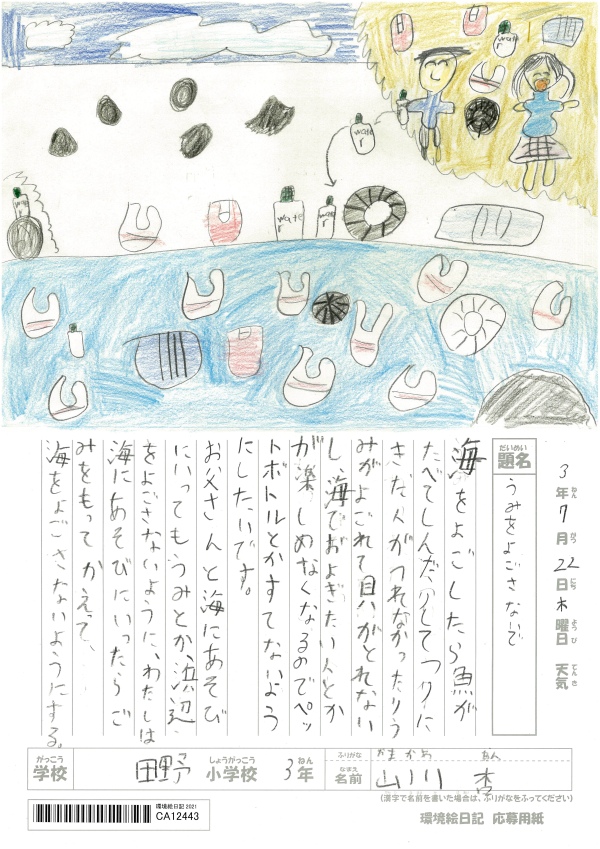 water
water
water
water
water
3年ねん7月がつ22日にち木曜日ようび 天気てんき
だいめい
題名
うみをよごさないで
海をよごしたら魚が
たべてしんだりしてつりに
きた人がつれなかったりう
みがよごれて貝がとれない
し、海でおよぎたい人とか
が楽しめなくなるのでペッ
トボトルとかすてないよう
にしたいです。
お父さんと海にあそび
にいってもうみとか、浜辺
をよごさないように、わたしは
海にあそびにいったらご
みをもってかえって、
海をよごさないようにする。
がっこう
学校
田野
しょうがっこう
小学校
3年ねん
ふりがな
なまえ
名前
山川 杏
(漢字で名前を書いた場合は、ふりがなをふってください)
環境絵日記 2021
CA12443
環境絵日記 応募用紙